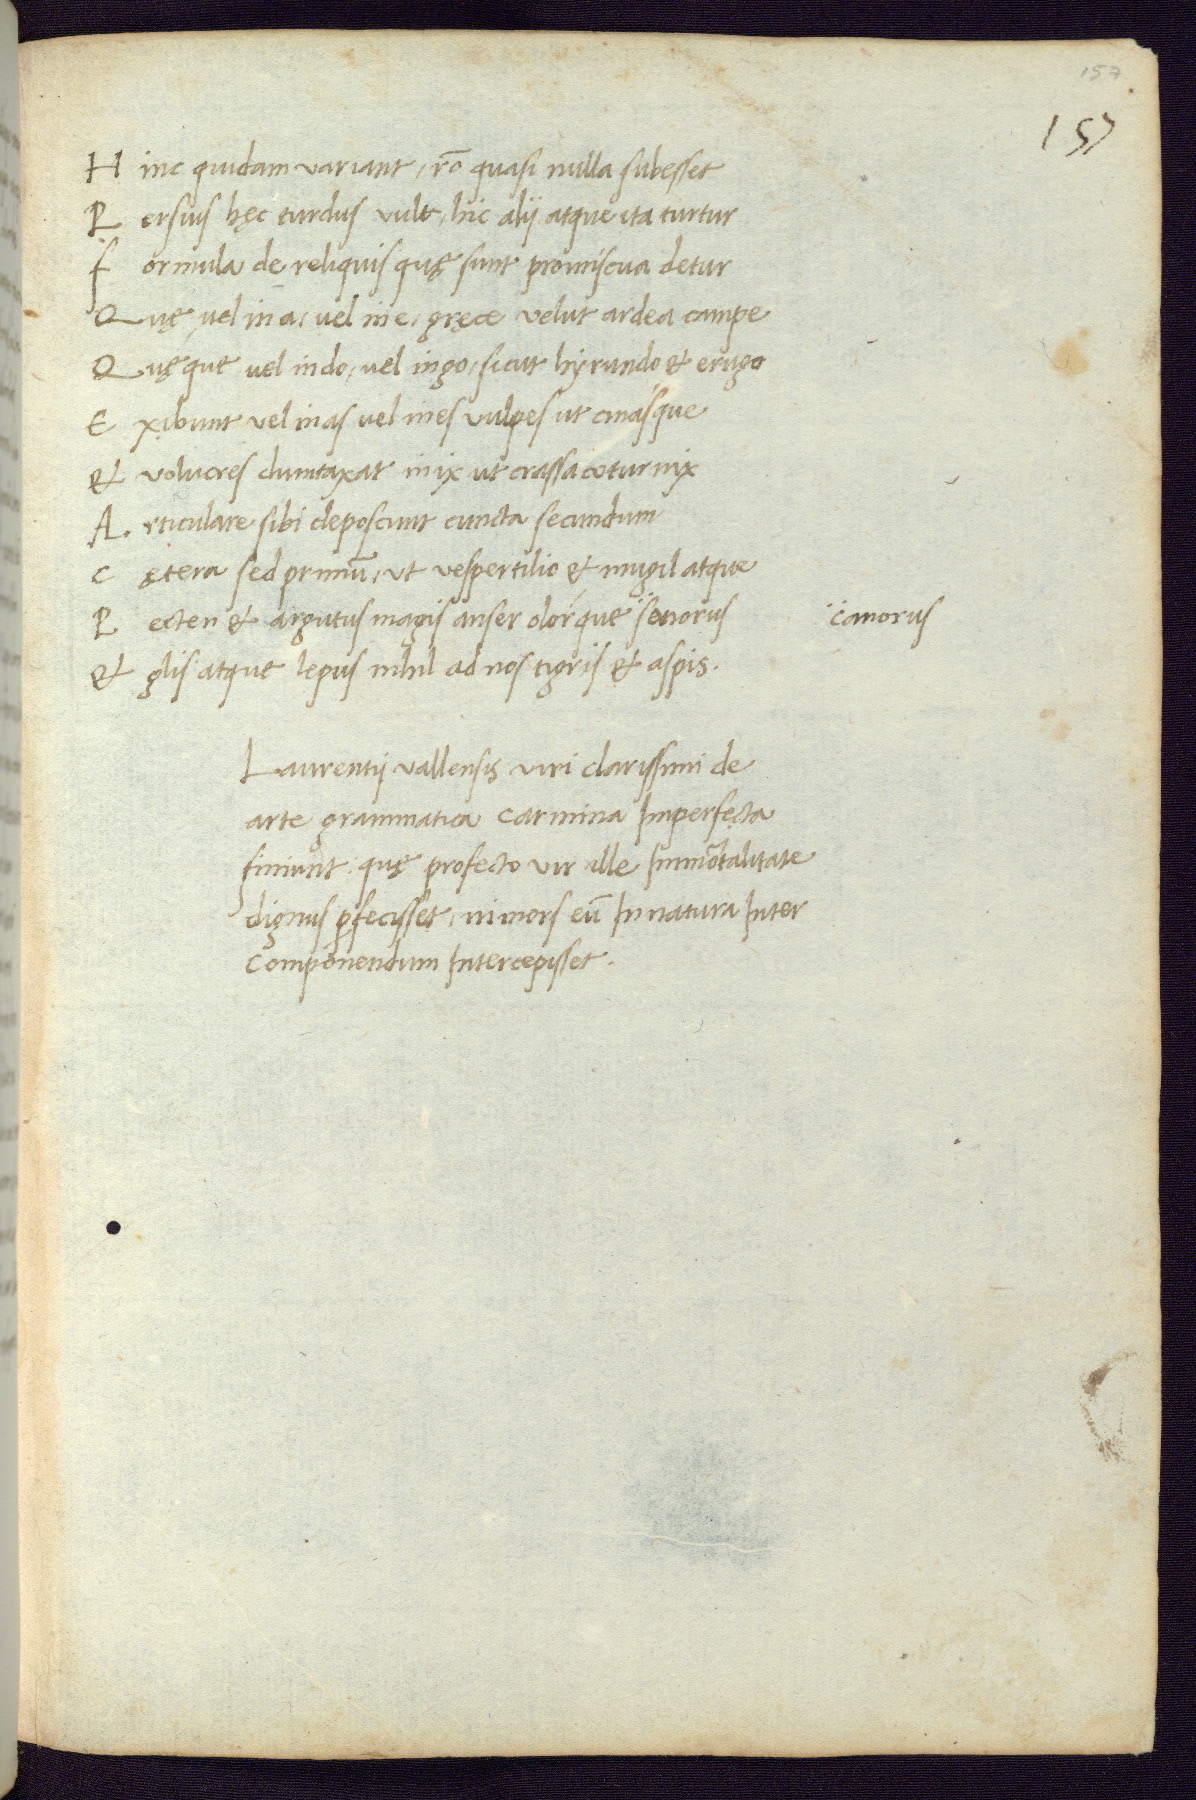 157
157
Hinc quidam variant, rõ quasi nulla subesset
Persius hęc turdus vult, hic alij atque ita turtur
formula de reliquis quę sunt promiscua detur
Quę vel in a, vel in e, gręce velut ardea campe
Quęque vel in do, vel in go, sicut hyrundo & erugo
Exibunt vel in as vel in es vulpes ut anasque
& volucres dumtaxat in ix ut crassa coturnix
Articulare sibi deposcunt cuncta secundum
Cętera sed primũ, ut vespertilio & mugil atque
Pecten & argutus magis anser olorque sonorus canorus
& glis atque lepus nihil ad nos tigris & aspis.
Laurentij vallensis viri clarissimi de
arte grammatica carmina Imperfecta
finiunt. quę profecto vir ille Immortalitate
dignus ꝑfecisset, ni mors eũ In natura Inter
componendum Intercepisset.